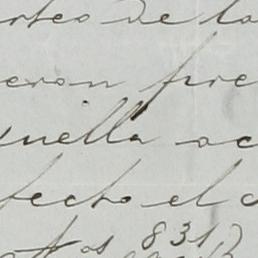 rteo de la
eron pre
quella ac
fecho el c
os 831